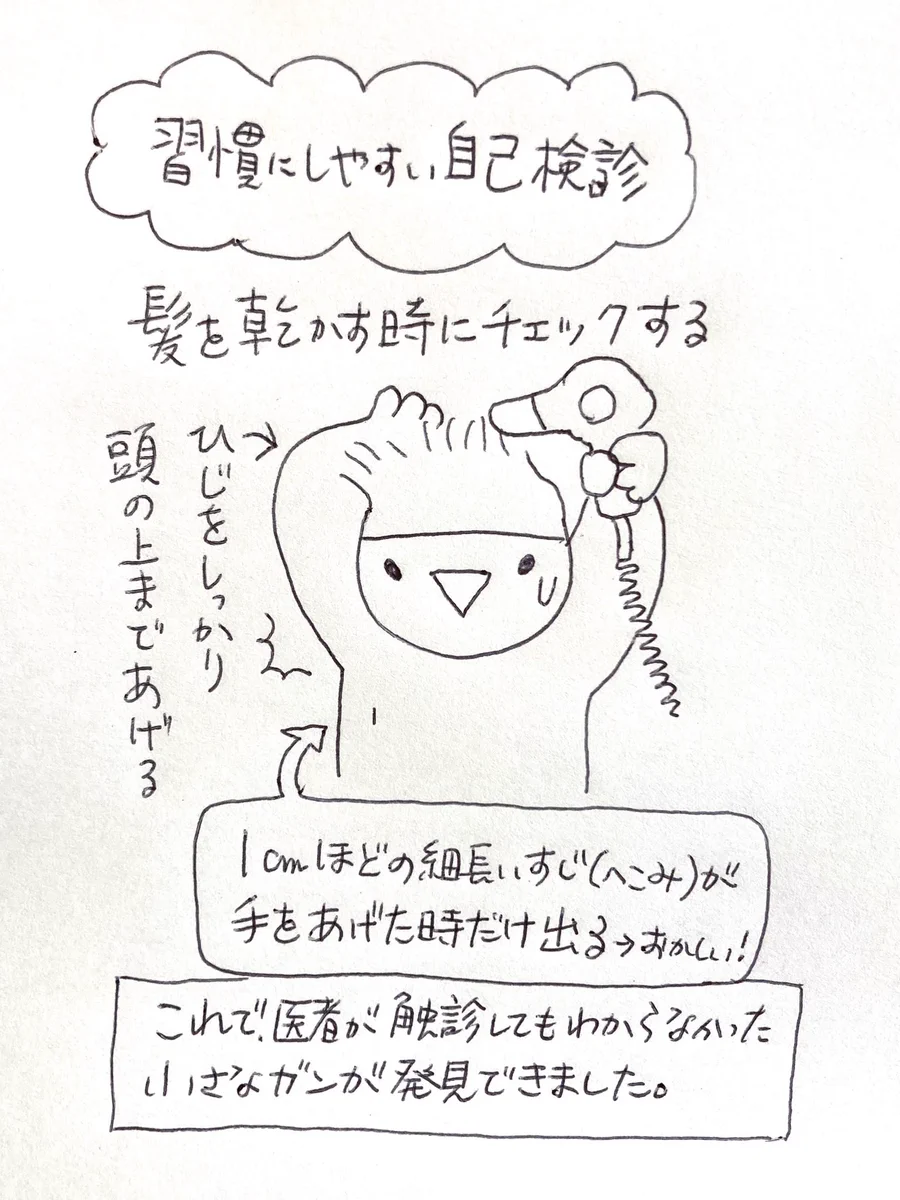 習慣にしやすい自己検診
髪を乾かす時にチェックする
ひじをしっかり
頭の上まであげる
1cmほどの細長いすじ(へこみ)が
手をあげた時だけ出る→おかしい!
これで、医者が触診してもわからなかった
小さなガンが発見できました。